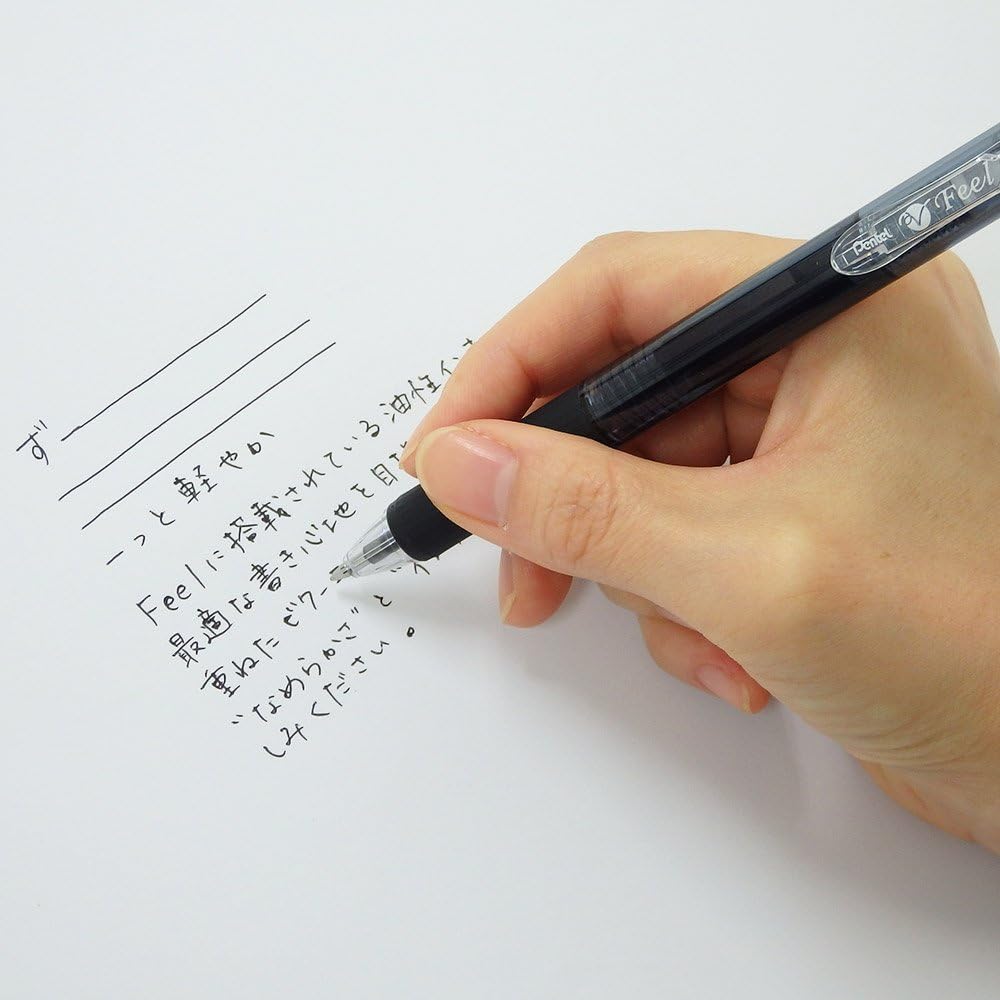 ず
ーっと軽やか
Feelに搭載されている油性イン
最適な書き心地を目指
重ねた ビク
"なめらかさ" と
しみください。
Pentel Feel